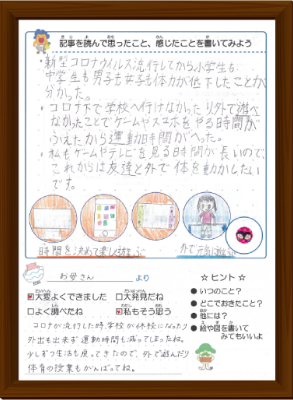 記事を読んで思ったこと、感じたことを書いてみよう
・新型コロナウイルス流行してから小学生も
中学生も男子も女子も体力が低下したことが
分かった。
・コロナ下で学校へ行けなかったり外で遊べ
なかったことでゲームやスマホをやる時間が
ふえたから運動時間がへった。
・私もゲームやテレビを見る時間が長いので、
これからは友達と外で体を動かしたい
です。
時間を決めて楽しく遊ぶ
外で元気に遊ぶ
お母さん より
大変よくできました
大発見だね
よく調べたね
私もそう思う
コロナが流行した時、学校が休校になったり
外出も出来ず運動時間も減ってしまったね。
少しずつ生活も戻ってきたので、外で遊んだり
体育の授業もがんばってね。
☆ ヒント ☆
● いつのこと?
● どこでおきたこと?
● 他には?
● 絵や図を書いて
みてもいいよ